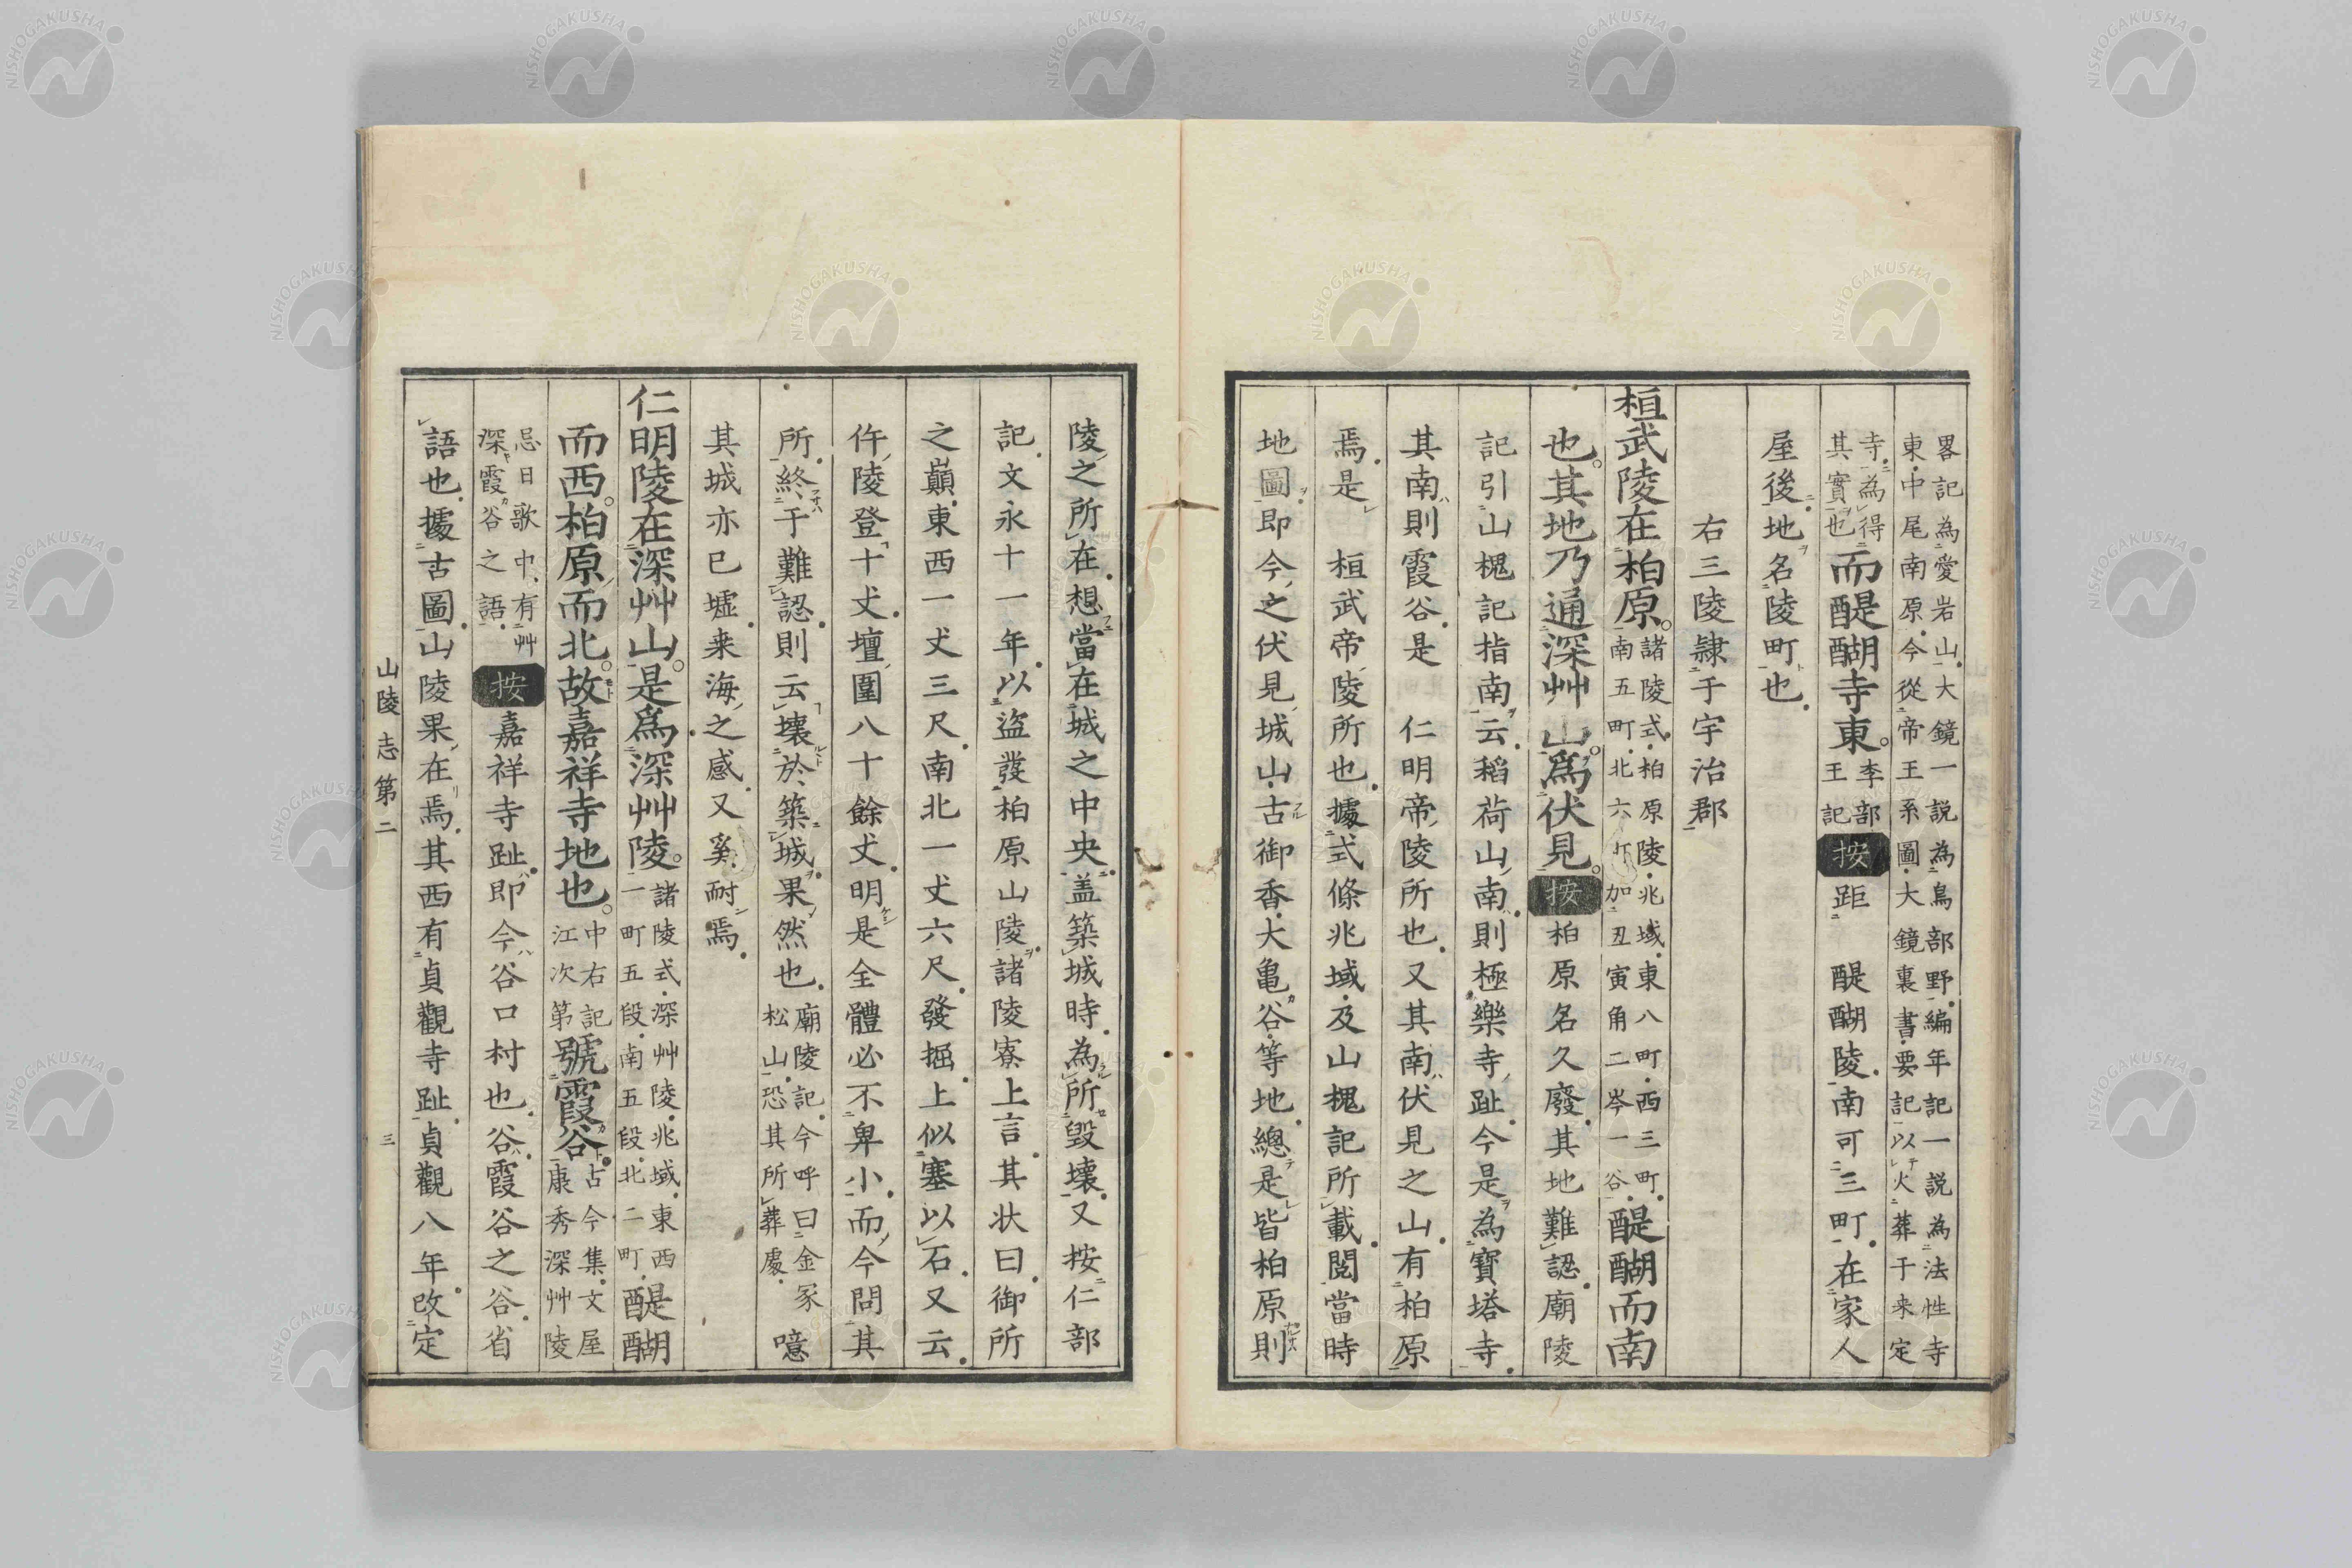 畧記為愛岩山大鏡一説為鳥部野編年記一説為法性寺
東中尾南原今從帝王系圖大鏡裏書要記以火葬于来定
寺為得
其實也
而醍醐寺東
李部
王記
按距　醍醐陵南可三町在家人
屋後地名陵町也
右三陵隷于宇治郡
桓武陵在柏原
諸陵式柏原陵兆域東八町西三町
南五町北六町加丑寅角二岑一谷
醍醐而南
也其地乃通深艸山為伏見按柏原名久廢其地難認廟陵
記引山槐記指南云稻荷山南則極樂寺趾今是為寳塔寺
其南則霞谷是　仁明帝陵所也又其南伏見之山有柏原
焉是　桓武帝陵所也據式條兆域及山槐記所載閲當時
地圖即今之伏見城山古御香大亀谷等地總是皆柏原則
陵之所在想當在城之中央盖築城時為所毀壞又按仁部
記文永十一年以盗發柏原山陵諸陵寮上言其状曰御所
之巔東西一丈三尺南北一丈六尺發掘上似塞以石又云
仵陵登十丈壇圍八十餘丈明是全體必不卑小而今問其
所終于難認則云壞於築城果然也
廟陵記今呼曰金冢
松山恐其所葬處
噫
其城亦已墟来海之感又奚耐焉
仁明陵在深艸山是爲深艸陵
諸陵式深艸陵兆域東西
一町五段南五段北二町
醍醐
而西柏原而北故嘉祥寺地也
中右記
江次第
號霞谷
占今集文屋
康秀深艸陵
忌日歌中有艸
深霞谷之語
按嘉祥寺趾即今谷口村也谷霞谷之谷省
語也據古圖山陵果在焉其西有貞觀寺趾貞觀八年改定
山陵志第二
三
NISHOGAKUSHA